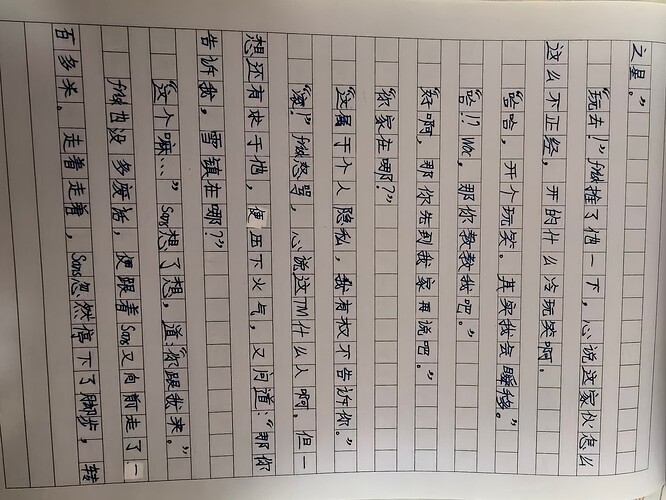 之星。”
“玩去!”frisk推了他一下,心说这家伙怎么
这么不正经,开的什么冷玩笑啊。
“哈哈,开个玩笑。其实我会瞬移。”
“哈!?Wc,那你教教我吧。”
“好啊,那你先到我家再说吧。”
“你家在哪?”
“这属于个人隐私,我有权不告诉你。”
“滚!”frisk怒骂,心说这TM什么人啊。但一
想还有求于他,便压下火气,又问道:“那你
告诉我,雪镇在哪?”
“这个嘛…”Sans想了想,道:“你跟我来。”
frisk也没多废话,便跟着Sans又向前走了一
百多米。走着走着,Sans忽然停下了脚步,转